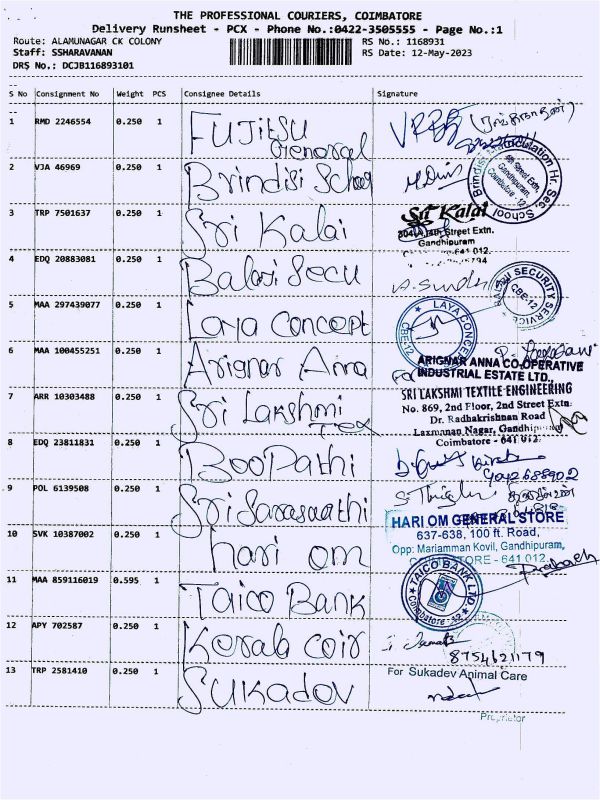 THE PROFESSIONAL COURIERS, COIMBATORE
Delivery Runsheet - PCX - Phone No.:0422-3505555 - Page No.:1
Route: ALAMUNAGAR CK COLONY RS No.: 1168931
Staff: SSHARAVANAN RS Date: 12-May-2023
DRS No.: DCJB116893101
S No Consignment No Weight PCS Consignee Details Signature
1 RMD 2246554 0.250 1 Fujitsu General
2 VJA 46969 0.250 1 Brindisi School
Brindisi Matriculation Hr. Sec. School
4th Street Extn, Gandhipuram, Coimbatore - 12
3 TRP 7501637 0.250 1 Sri Kalai Sri Kalai
4th Street Extn.
Gandhipuram
4 EDQ 20883081 0.250 1 Balaji Secu
SECURITY SERVICE CBE-12
5 MAA 297439077 0.250 1 Laya Concept LAYA CONCEPT CBE-12
6 MAA 100455251 0.250 1 Arignar Anna For
ARIGNAR ANNA CO-OPERATIVE
INDUSTRIAL ESTATE LTD.,
7 ARR 10303488 0.250 1 Sri Lakshmi Tex SRI LAKSHMI TEXTILE ENGINEERING
No. 869, 2nd Floor, 2nd Street Extn.
Dr. Radhakrishnan Road
Laxmanan Nagar, Gandhipuram
Coimbatore - 641 012.
8 EDQ 23811831 0.250 1 Boopathi
9 POL 6139508 0.250 1 Sri Sarasaathi
10 SVK 10387002 0.250 1 hari om HARI OM GENERAL STORE
637-638, 100 ft. Road,
Opp: Mariamman Kovil, Gandhipuram,
COIMBATORE - 641 012
11 MAA 859116019 0.595 1 Taico Bank Prakash
TAICO BANK LTD Coimbatore - 12
12 APY 702587 0.250 1 Kerala coir
8754621179
13 TRP 2581410 0.250 1 Sukadev For Sukadev Animal Care
Proprietor